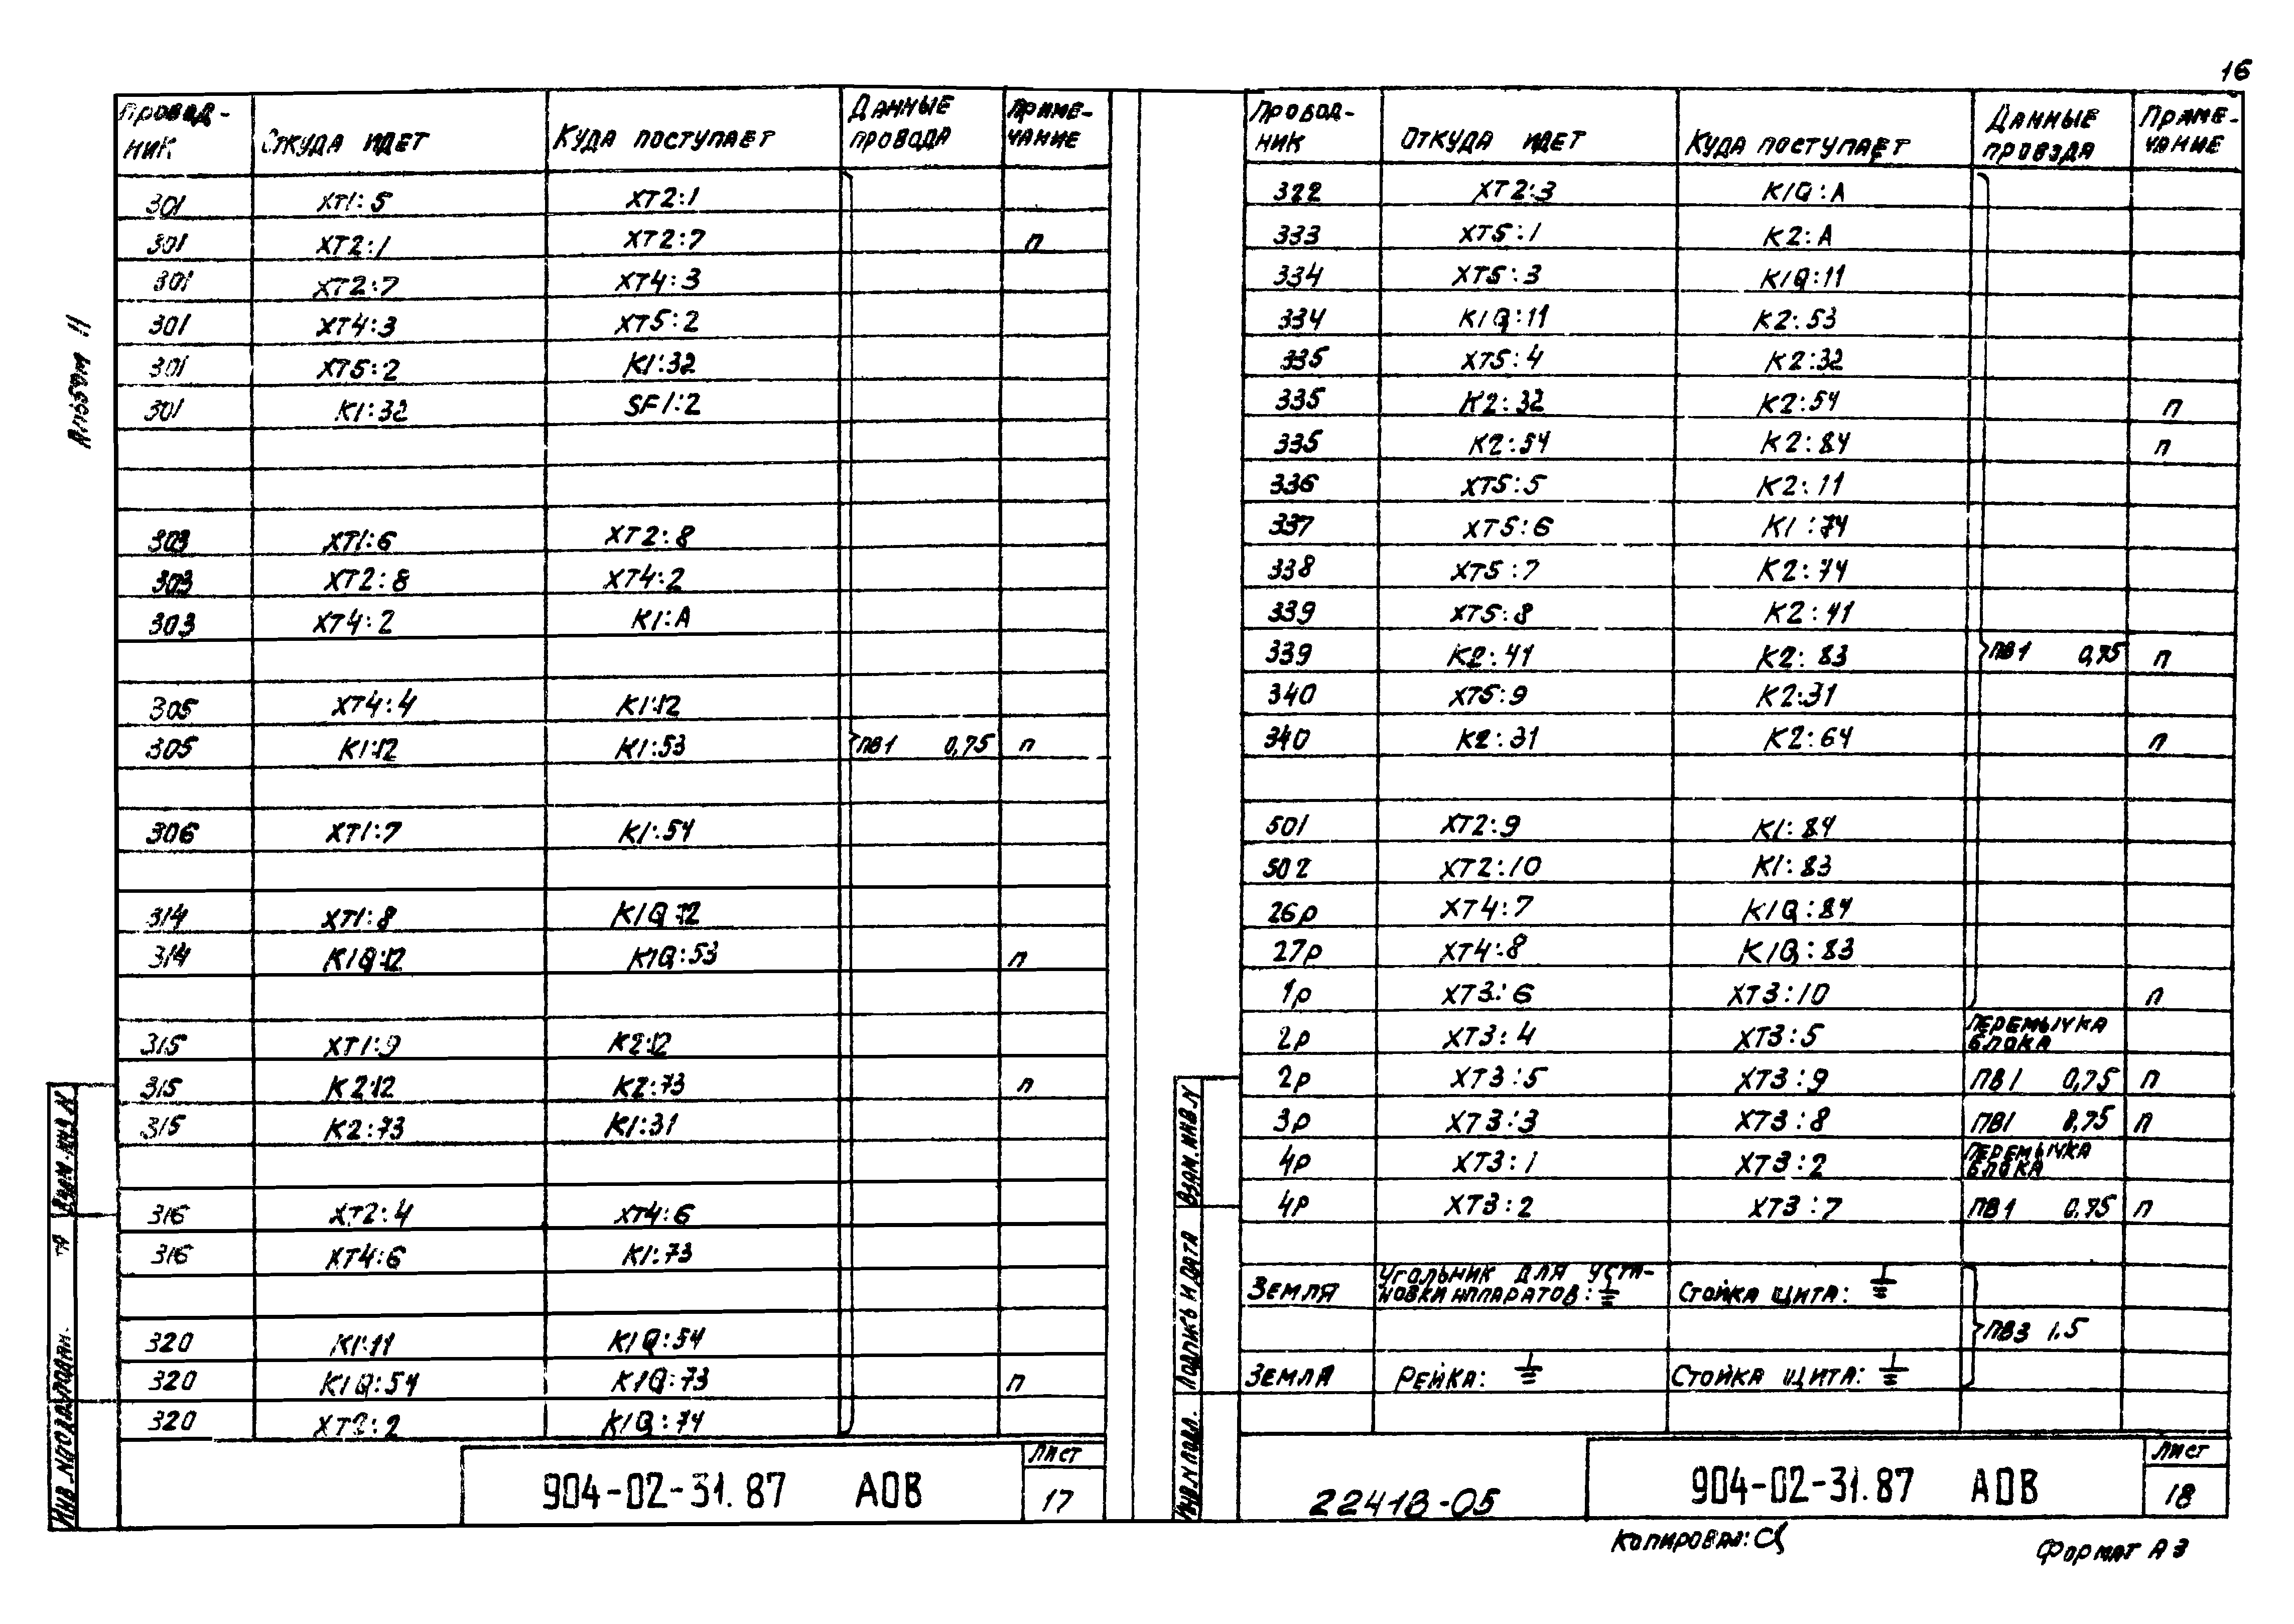 16
Альбом II
Провод-ник Откуда идет Куда поступает Данные провода Примечание
301 XT1:5 XT2:1
301 XT2:1 XT2:7 п
301 XT2:7 XT4:3
301 XT4:3 XT5:2
301 XT5:2 K1:32
301 K1:32 SF1:2
303 XT1:6 XT2:8
303 XT2:8 XT4:2
303 XT4:2 K1:A
305 XT4:4 K1:12
305 K1:12 K1:53 ПВ1 0,75 п
306 XT1:7 K1:54
314 XT1:8 K1Q:12
314 K1Q:12 K1Q:53 п
315 XT1:9 K2:12
315 K2:12 K2:73 п
315 K2:73 K1:31
316 XT2:4 XT4:6
316 XT4:6 K1:73
320 K1:11 K1Q:54
320 K1Q:54 K1Q:73 п
320 XT2:2 K1Q:74
904-02-31.87 АОВ
Лист
17
Взам. инв. N
Инв. N подл.
Провод-ник Откуда идет Куда поступает Данные провода Примечание
322 XT2:3 K1Q:A
333 XT5:1 K2:A
334 XT5:3 K1Q:11
334 K1Q:11 K2:53
335 XT5:4 K2:32
335 K2:32 K2:54 п
335 K2:54 K2:84 п
336 XT5:5 K2:11
337 XT5:6 K1:74
338 XT5:7 K2:74
339 XT5:8 K2:41
339 K2:41 K2:83 ПВ1 0,75 п
340 XT5:9 K2:31
340 K2:31 K2:64 п
501 XT2:9 K1:84
502 XT2:10 K1:83
26р XT4:7 K1Q:84
27р XT4:8 K1Q:83
1р XT3:6 XT3:10 п
2р XT3:4 XT3:5 Перемычка блока
2р XT3:5 XT3:9 ПВ1 0,75 п
3р XT3:3 XT3:8 ПВ1 0,75 п
4р XT3:1 XT3:2 Перемычка блока
4р XT3:2 XT3:7 ПВ1 0,75 п
Земля Угольник для уста-
новки аппаратов: Стойка щита:
ПВ3 1.5
Земля Рейка: Стойка щита:
Взам. инв. N
Подпись и дата
Инв. N подл.
22418-05
904-02-31.87 АОВ
Лист
18
Копировал:
Формат А3